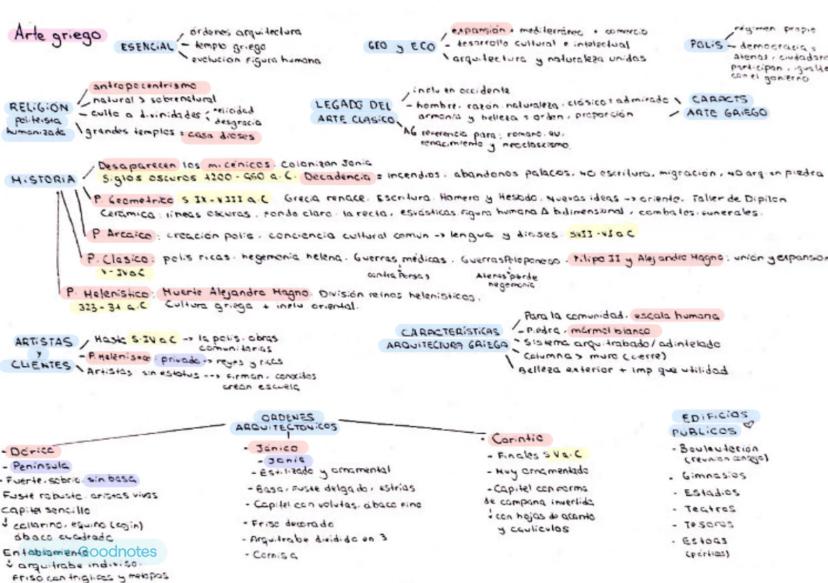 Arte griego
ESENCIAL
órdenes arquitectura
templo griego
evolución figura humana
GEO y ECO
expansión + mediterráneo + comercio
- desarrollo cultural e intelectual
arquitectura y naturaleza unidas
POLIS
régimen propio
democracia:
atenas, ciudadanos
participan
con el gobierno
RELIGIÓN
politeista
humanizada
antropocentrismo
natural > sobrenatural
culto a divinidades
felicidad
desgracia
grandes templos = casa dioses
LEGADO DEL
ARTE CLASICO
influ en occidente
- hombre, razón, naturaleza, clásico = admirado
armonia y belleza = orden, proporción
AG referencia para: romano,
renacimiento y neoclasicismo
CARACTS
ARTE GRIEGO
HISTORIA
Desaparecen los micénicos. Colonizan Jonia
Siglos oscuros 1200 - a.C. Decadencia = incendios, abandonos palacios, no escritura, migración, no arq en piedra
P. Geometrico S IX - VIII a.C Grecia renace. Escritura. Homero y Hesiodo. Nuevas ideas -> oriente. Taller de Dipilon
Cerámica: lineas oscuras, fondo claro, la recta, esvásticas, figura humana Δ bidimensional, combates, funerales.
P Arcaico: creación polis, conciencia cultural comun -> lengua y dioses. SVII - VI a C
P. Clasico: polis ricas, hegemonia helena, Guerras médicas, Guerras Peloponeso. Filipo II y Alejandro Magno: unión y expansion
V - IV a C
contra Persas
Atenas pierde
hegemonia
P. Helenistico: Muerte Alejandro Magno. División reinos helenisticos.
323 - 31 a.C Cultura griega + influ oriental.
ARTISTAS
Y
CLIENTES
Hasta S. IV a C -> la polis, obras
comunitarias
P. Helenistico: privado -> reyes y ricos
Artistas sin estatus --> firman, conocidos
crean escuela
CARACTERÍSTICAS
ARQUITECTURA GRIEGA
Para la comunidad, escala humana
- Piedra, mármol blanco
Sistema arqu. trabado / adintelado
Columna > muro (cierre)
Belleza exterior + imp que utilidad
ORDENES
ARQUITECTONICOS
- Dórico
- Península
- Fuerte, sobrio, sin basa
Fuste robusto, aristas vivas
Capitel sencillo
↓ collarino, equino (cojin)
abaco cuadrado
Entablamento
↓ arquitrabe indiviso
Friso con triglifos y metopas
- Jónico
- Jonia
- Estilizado y ornamental
- Basa, fuste delgado, estrias
- Capitel con volutas, abaco fino
- Friso decorado
- Arquitrabe dividido en 3
- Cornisa
- Corintio
- Finales S V a. C
- Muy ornamentado
- Capitel con forma
de campana invertida
↓ con hojas de acanto
y caulículos
EDIFICIOS
PUBLICOS ♡
- Bouleuterion
(reunion consejo)
- Gimnasios
- Estadios
- Teatros
- Tesoros
- Estoas
(pórticos)
Goodnotes